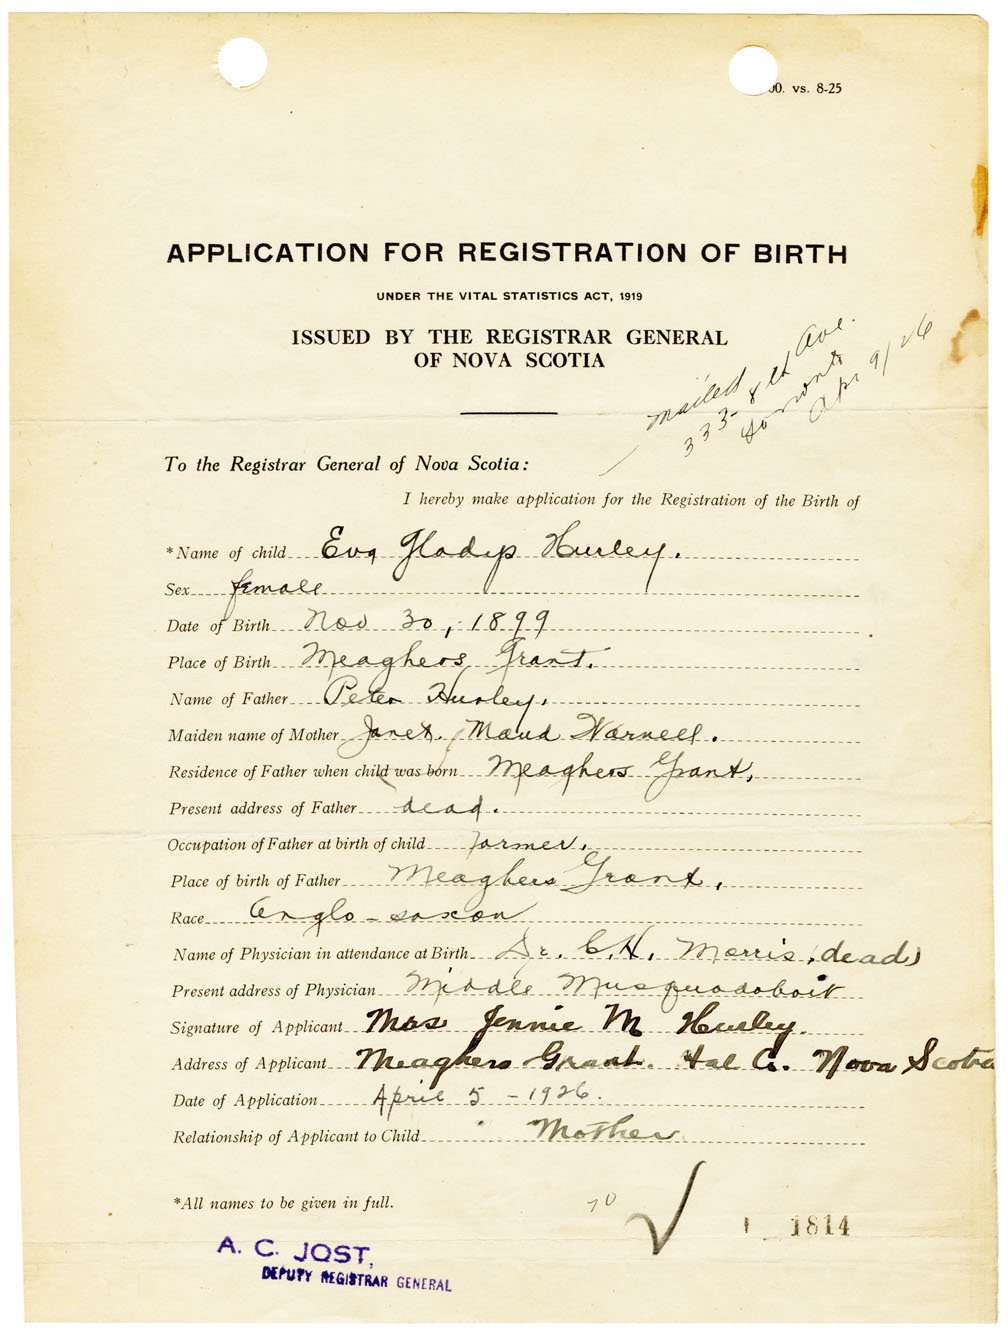 00. vs. 8-25
APPLICATION FOR REGISTRATION OF BIRTH
UNDER THE VITAL STATISTICS ACT, 1919
ISSUED BY THE REGISTRAR GENERAL
OF NOVA SCOTIA
mailed
333- 8th Ave.
Apr 9/26
To the Registrar General of Nova Scotia:
I hereby make application for the Registration of the Birth of
*Name of child Eva Gladys Hurley.
Sex female
Date of Birth Nov 30, 1899
Place of Birth Meaghers Grant.
Name of Father Peter Hurley.
Maiden name of Mother Janet Maud Warnell.
Residence of Father when child was born Meaghers Grant.
Present address of Father dead.
Occupation of Father at birth of child farmer.
Place of birth of Father Meaghers Grant.
Race Anglo-saxon
Name of Physician in attendance at Birth Dr. C. H. Morris (dead)
Present address of Physician Middle Musquodoboit
Signature of Applicant Mrs Jennie M Hurley.
Address of Applicant Meaghers Grant. Hal Co. Nova Scotia
Date of Application April 5 - 1926.
Relationship of Applicant to Child Mother
*All names to be given in full.
70
1814
A. C. JOST,
DEPUTY REGISTRAR GENERAL